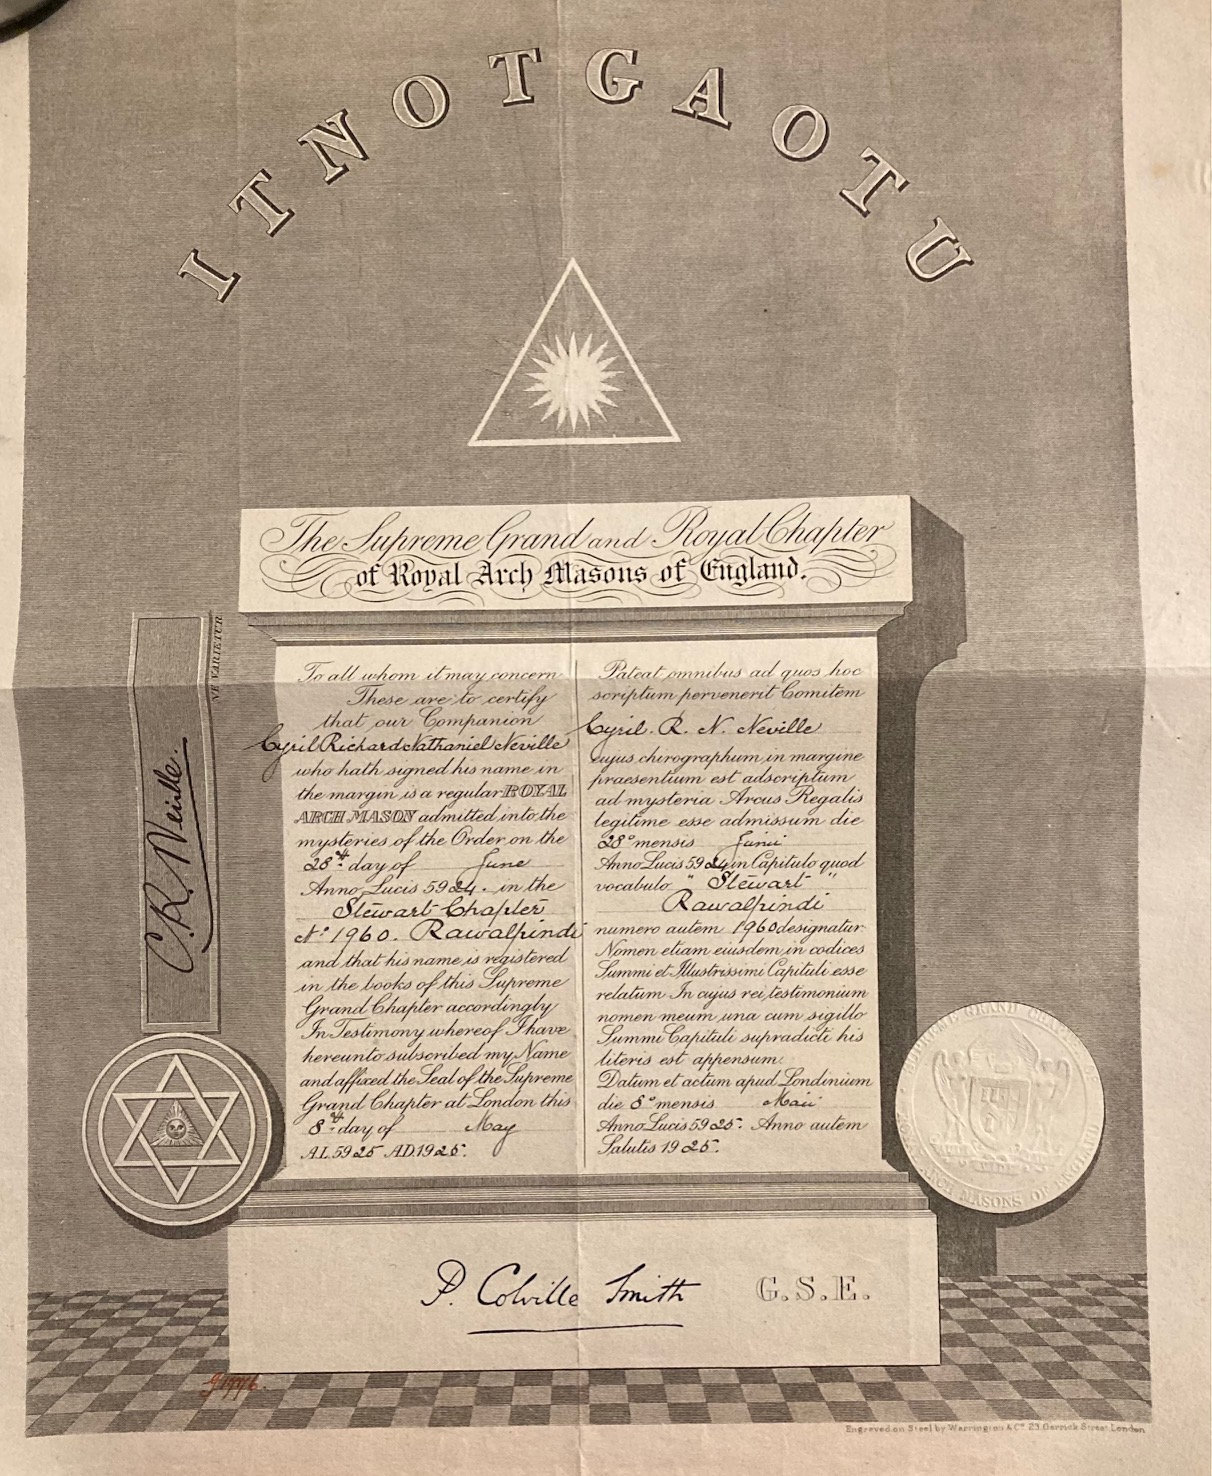 ITNOTGAOTU
The Supreme Grand and Royal Chapter
of Royal Arch Masons of England.
NE VARIETUR
C.R. Neville.
To all whom it may concern
These are to certify
that our Companion
Cyril Richard Nathaniel Neville
who hath signed his name in
the margin is a regular ROYAL
ARCH MASON admitted into the
mysteries of the Order on the
28th day of June
Anno Lucis 5924. in the
Stewart Chapter
No 1960. Rawalpindi
and that his name is registered
in the books of this Supreme
Grand Chapter accordingly
In Testimony whereof I have
hereunto subscribed my Name
and affixed the Seal of the Supreme
Grand Chapter at London this
8th day of May
A.L. 5925 A.D. 1925.
Pateat omnibus ad quos hoc
scriptum pervenerit Comitem
Cyril. R. N. Neville
cujus chirographum in margine
praesentium est adscriptum
ad mysteria Arcus Regalis
legitime esse admissum die
28o mensis Junii
Anno Lucis 5924 in Capitulo quod
vocabulo " Stewart "
Rawalpindi
numero autem 1960 designatur
Nomen etiam eiusdem in codices
Summi et Illustrissimi Capituli esse
relatum In cujus rei testimonium
nomen meum una cum sigillo
Summi Capituli supradicti his
literis est appensum.
Datum et actum apud Londinium
die 8o mensis Maii
Anno Lucis 5925. Anno autem
Salutis 1925.
P. Colville Smith G.S.E.
Engraved on Steel by Warrington & Co 23, Garrick Street London